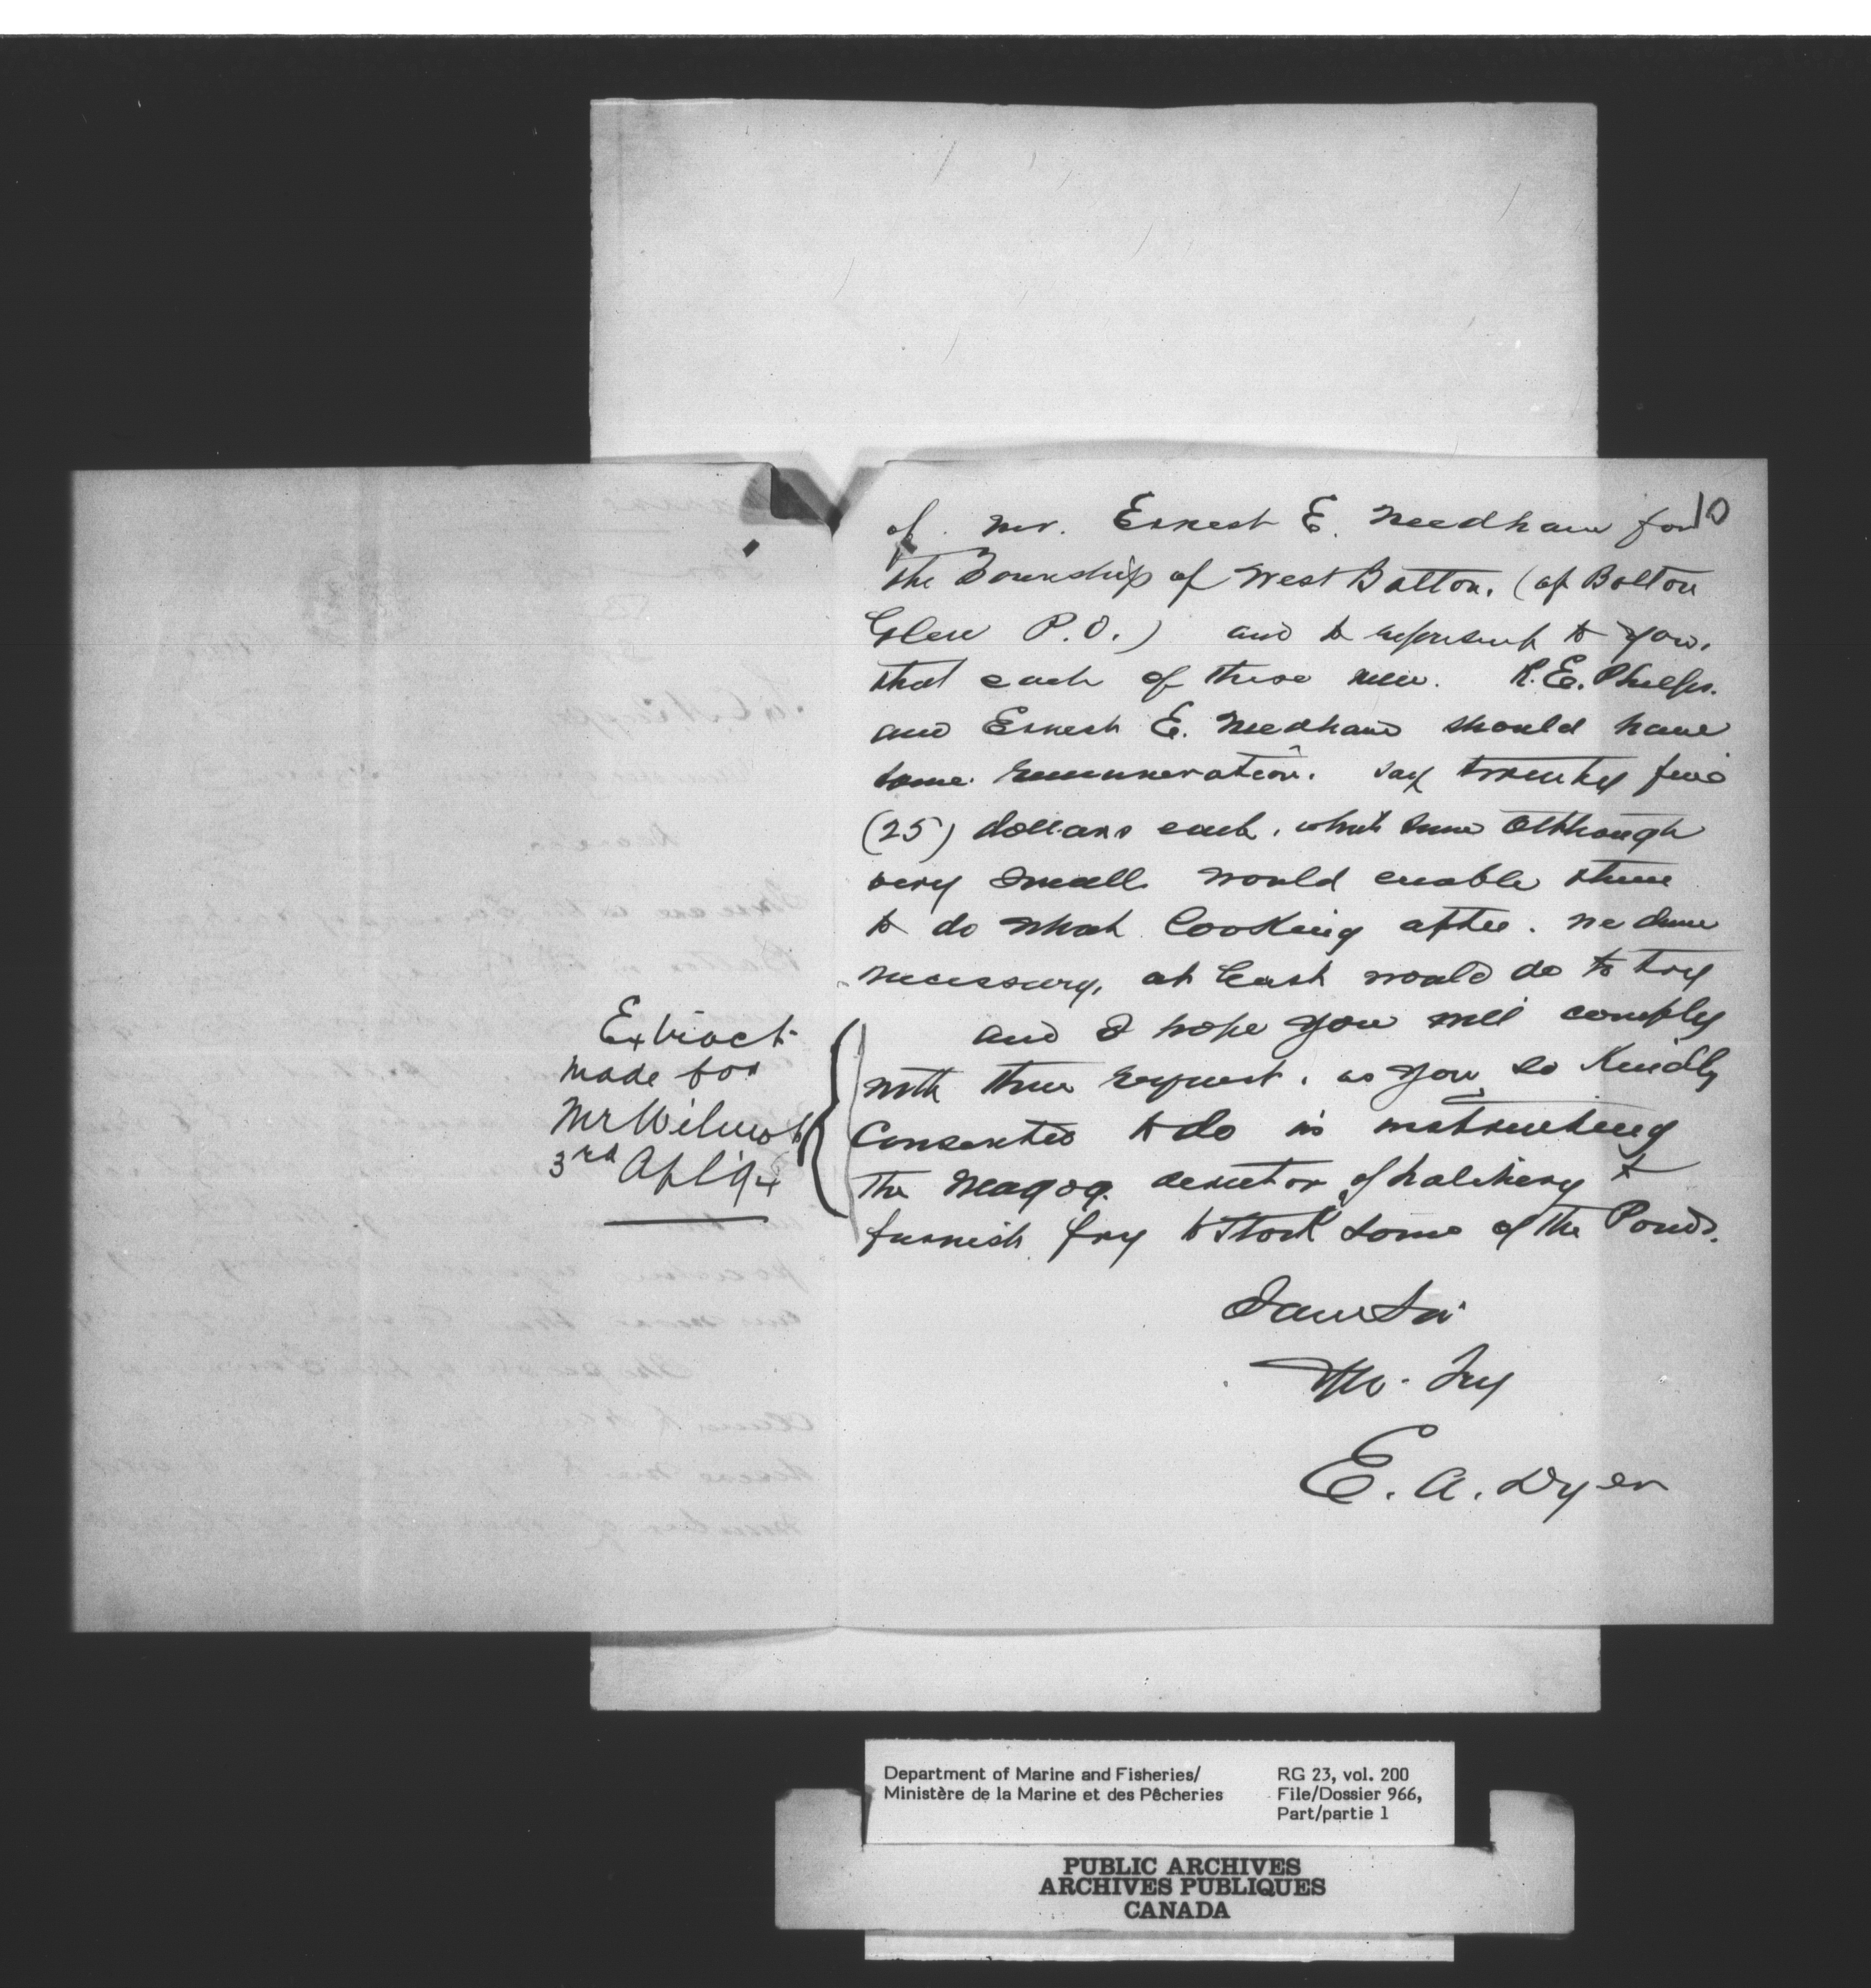 10
of Mr. Ernest E. Needham for
the Township of West Bolton. (of Bolton
Glen P.O.) and to represent to you,
that each of these men. R.E. Phelps.
and Ernest E. Needham should have
some remuneration. say twenty five
(25) dollars each, which sum although
very small would enable them
to do what looking after. we deem
necessary, at least would do to try
and I hope you will comply
with this request. as you so kindly
consented to do in instructing
the Magog. director of hatchery to
furnish fry to stock some of the Ponds.
I am Sir
Yr.
E. A. Dyer
Extract
made for
Mr Wilmot
3rd Apl 94
Department of Marine and Fisheries/
Ministère de la Marine et des Pêcheries
RG 23, vol. 200
File/Dossier 966,
Part/partie 1
PUBLIC ARCHIVES
ARCHIVES PUBLIQUES
CANADA